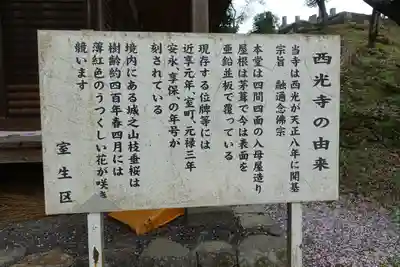 西光寺の由来
宗旨 融通念佛宗
当寺は西光が天正八年に開基
本堂は四間四面の入母屋造り
屋根は茅葺で今は表面を
亜鉛並板で覆っている
現存する位牌等には
近享元年、室町、元禄三年
安永、享保、の年号が
刻されている
境内にある城之山枝垂桜は
樹齢約四百年春四月には
薄紅色のうつくしい花が咲き
競います
室生区